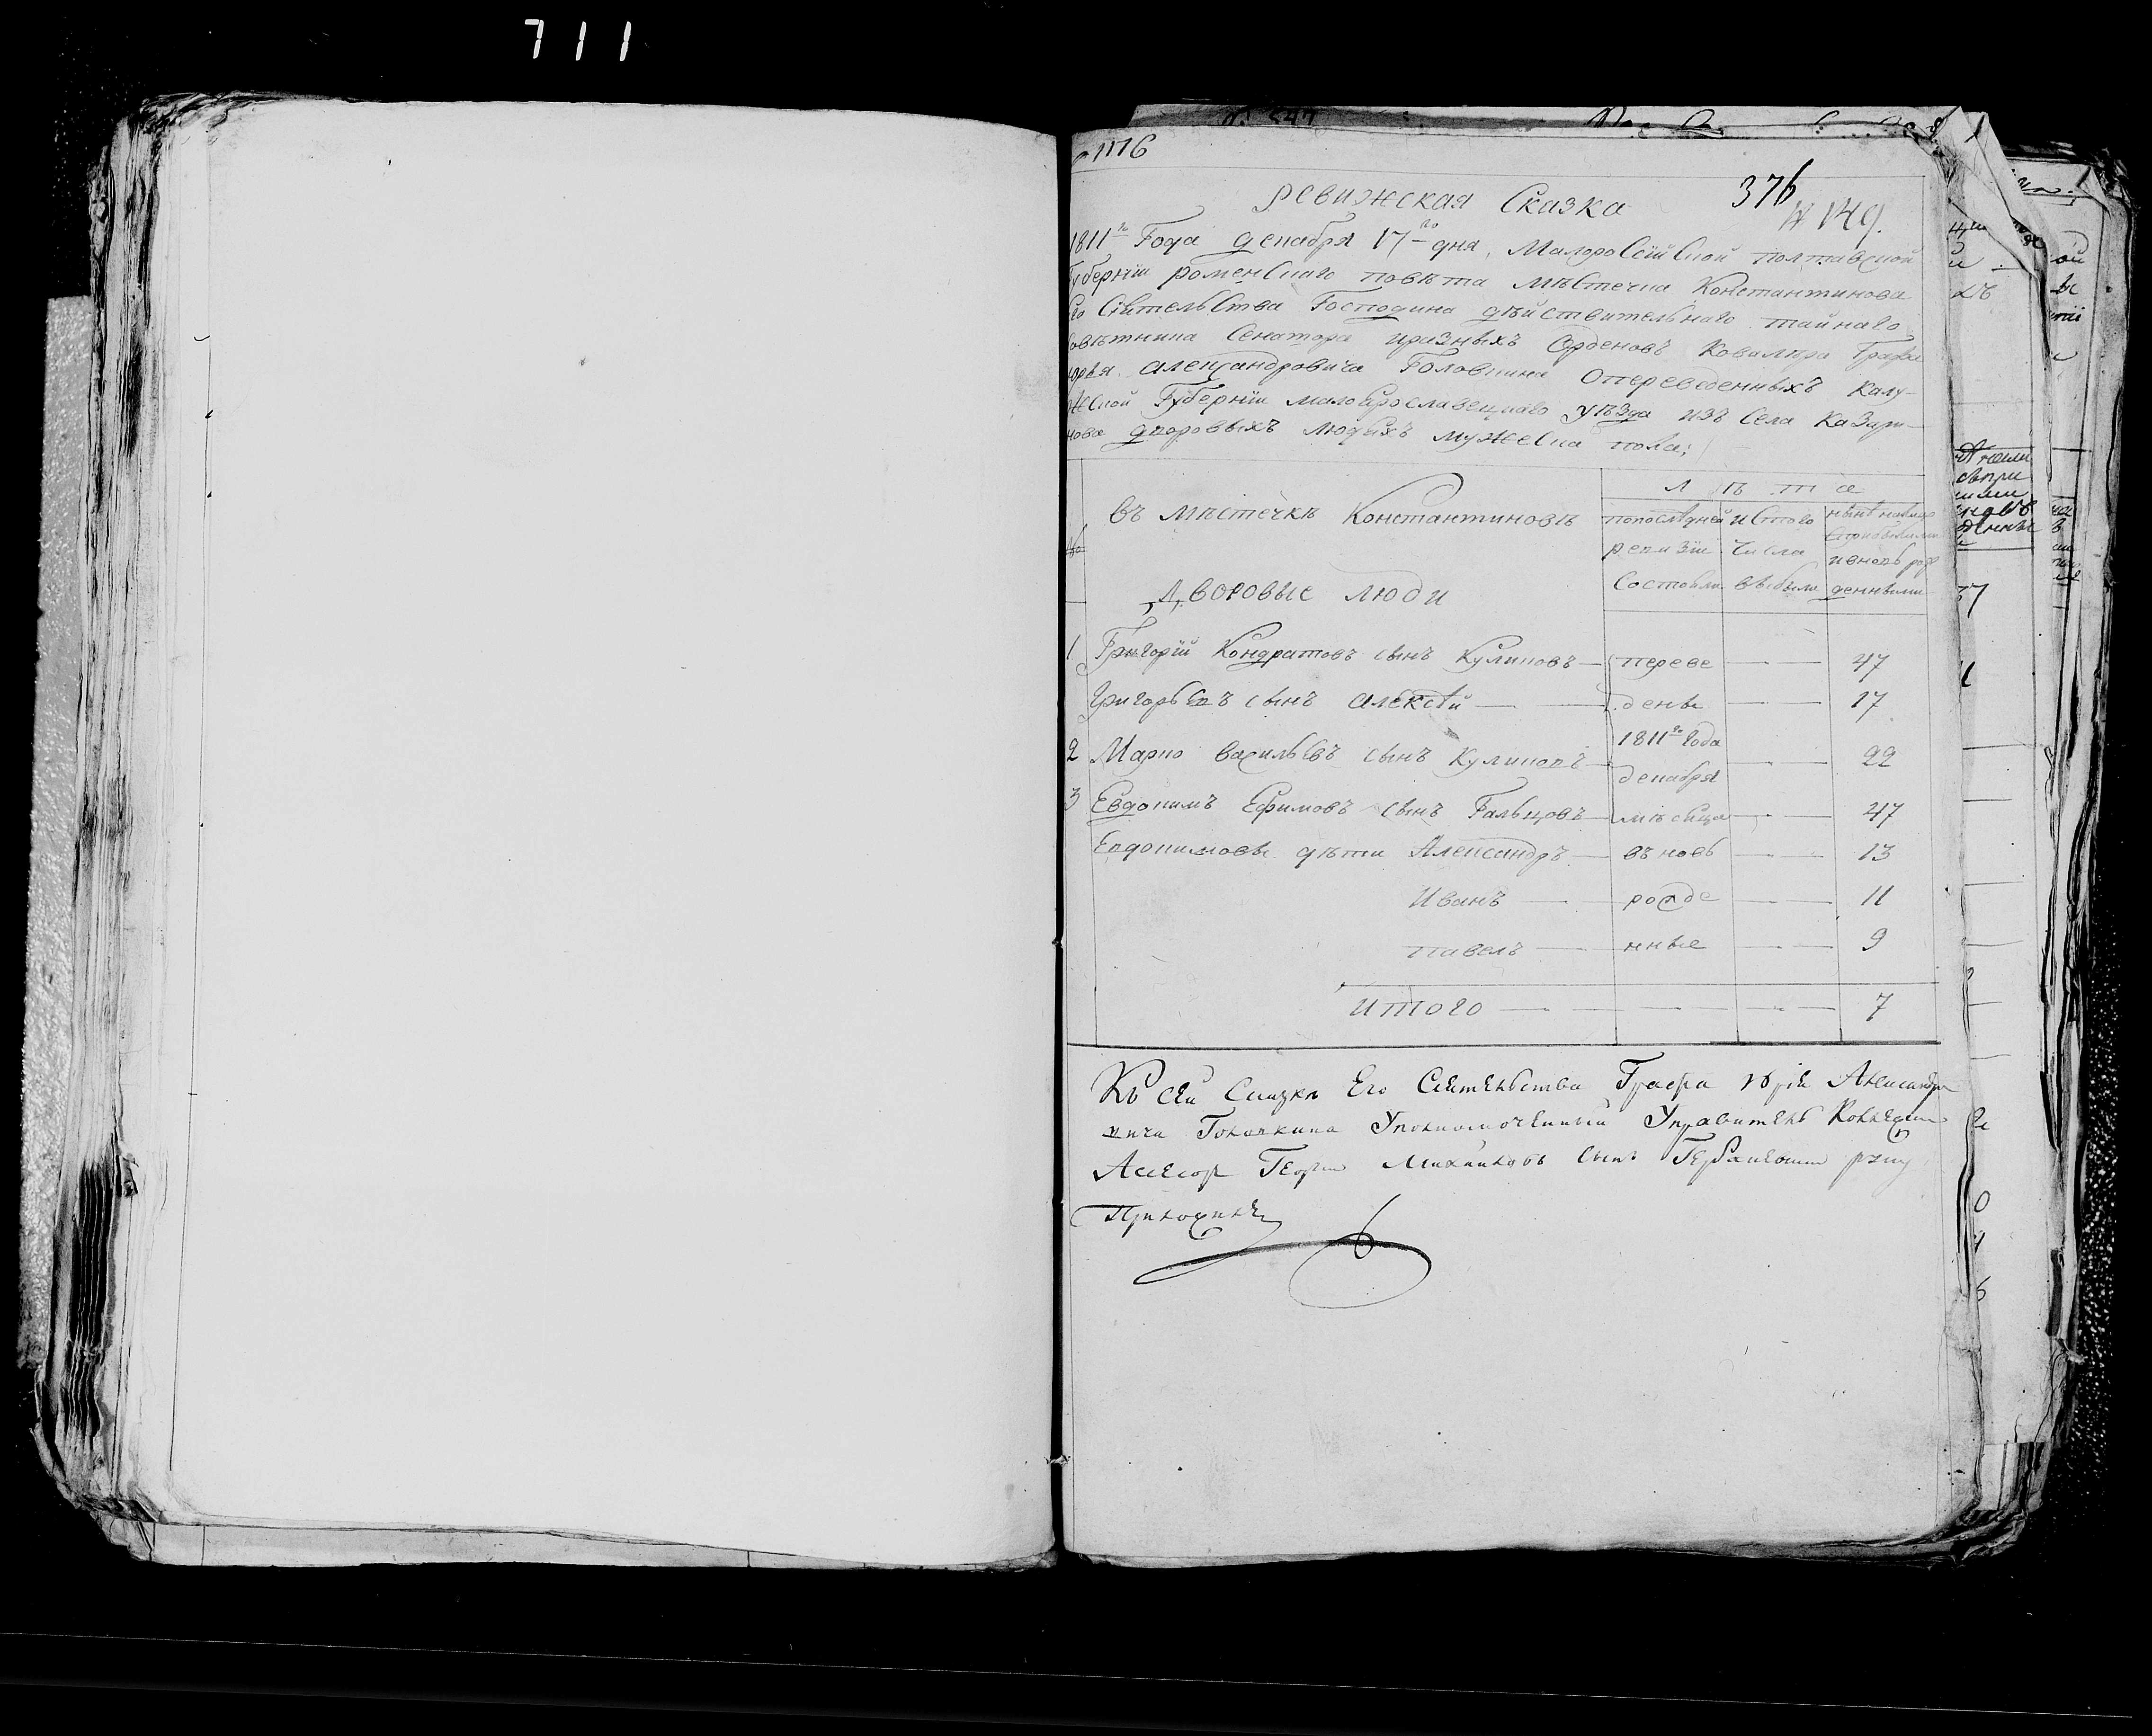 711
1176
376
Ревижская Сказка
№ 149.
1811го Года декабря 17го дня, Малоросїйской полтавской
Губернїи роменскаго повѣта мѣстечка Константинова
его Сїятельства Господина дѣйствительнаго тайнаго
Совѣтника Сенатора иразныхъ Орденовъ Ковалера Графа
юрья александровича Головкина Опереведенныхъ калу-
жской Губернїи малоярославецкаго уѣзда изъ Села Казари-
нова дворовыхъ людяхъ мужеска пола;
Л ѣ т а
въ мѣстечкѣ Константиновѣ
№
попослѣдней
ревизїи
Состояли
истого
числа
выбыло
нынѣ налицо
ивновь рож
денными
Дворовые люди
1 Григорїй Кондратовъ сынъ Куликовъ — переве — — 47
Григорьевъ сынъ алексѣй — — дены — — 17
1811го года
2 Марко васильевъ сынъ куликовъ — — 22
декабря
3 Евдокимъ Ефимовъ сынъ Гальцовъ — мѣсяца — — 47
Евдокимовы дѣти Александръ — въ новь — — 13
Иванъ — рожде — — 11
павелъ — нные — — 9
итого — — — — 7
Къ сей Сказке Его Сиятельства Графа юрія Александро
вича Головкина Уполномоченный Управитель Коллежски
Асесор Георги Михайловъ сынъ руку
Приложилъ